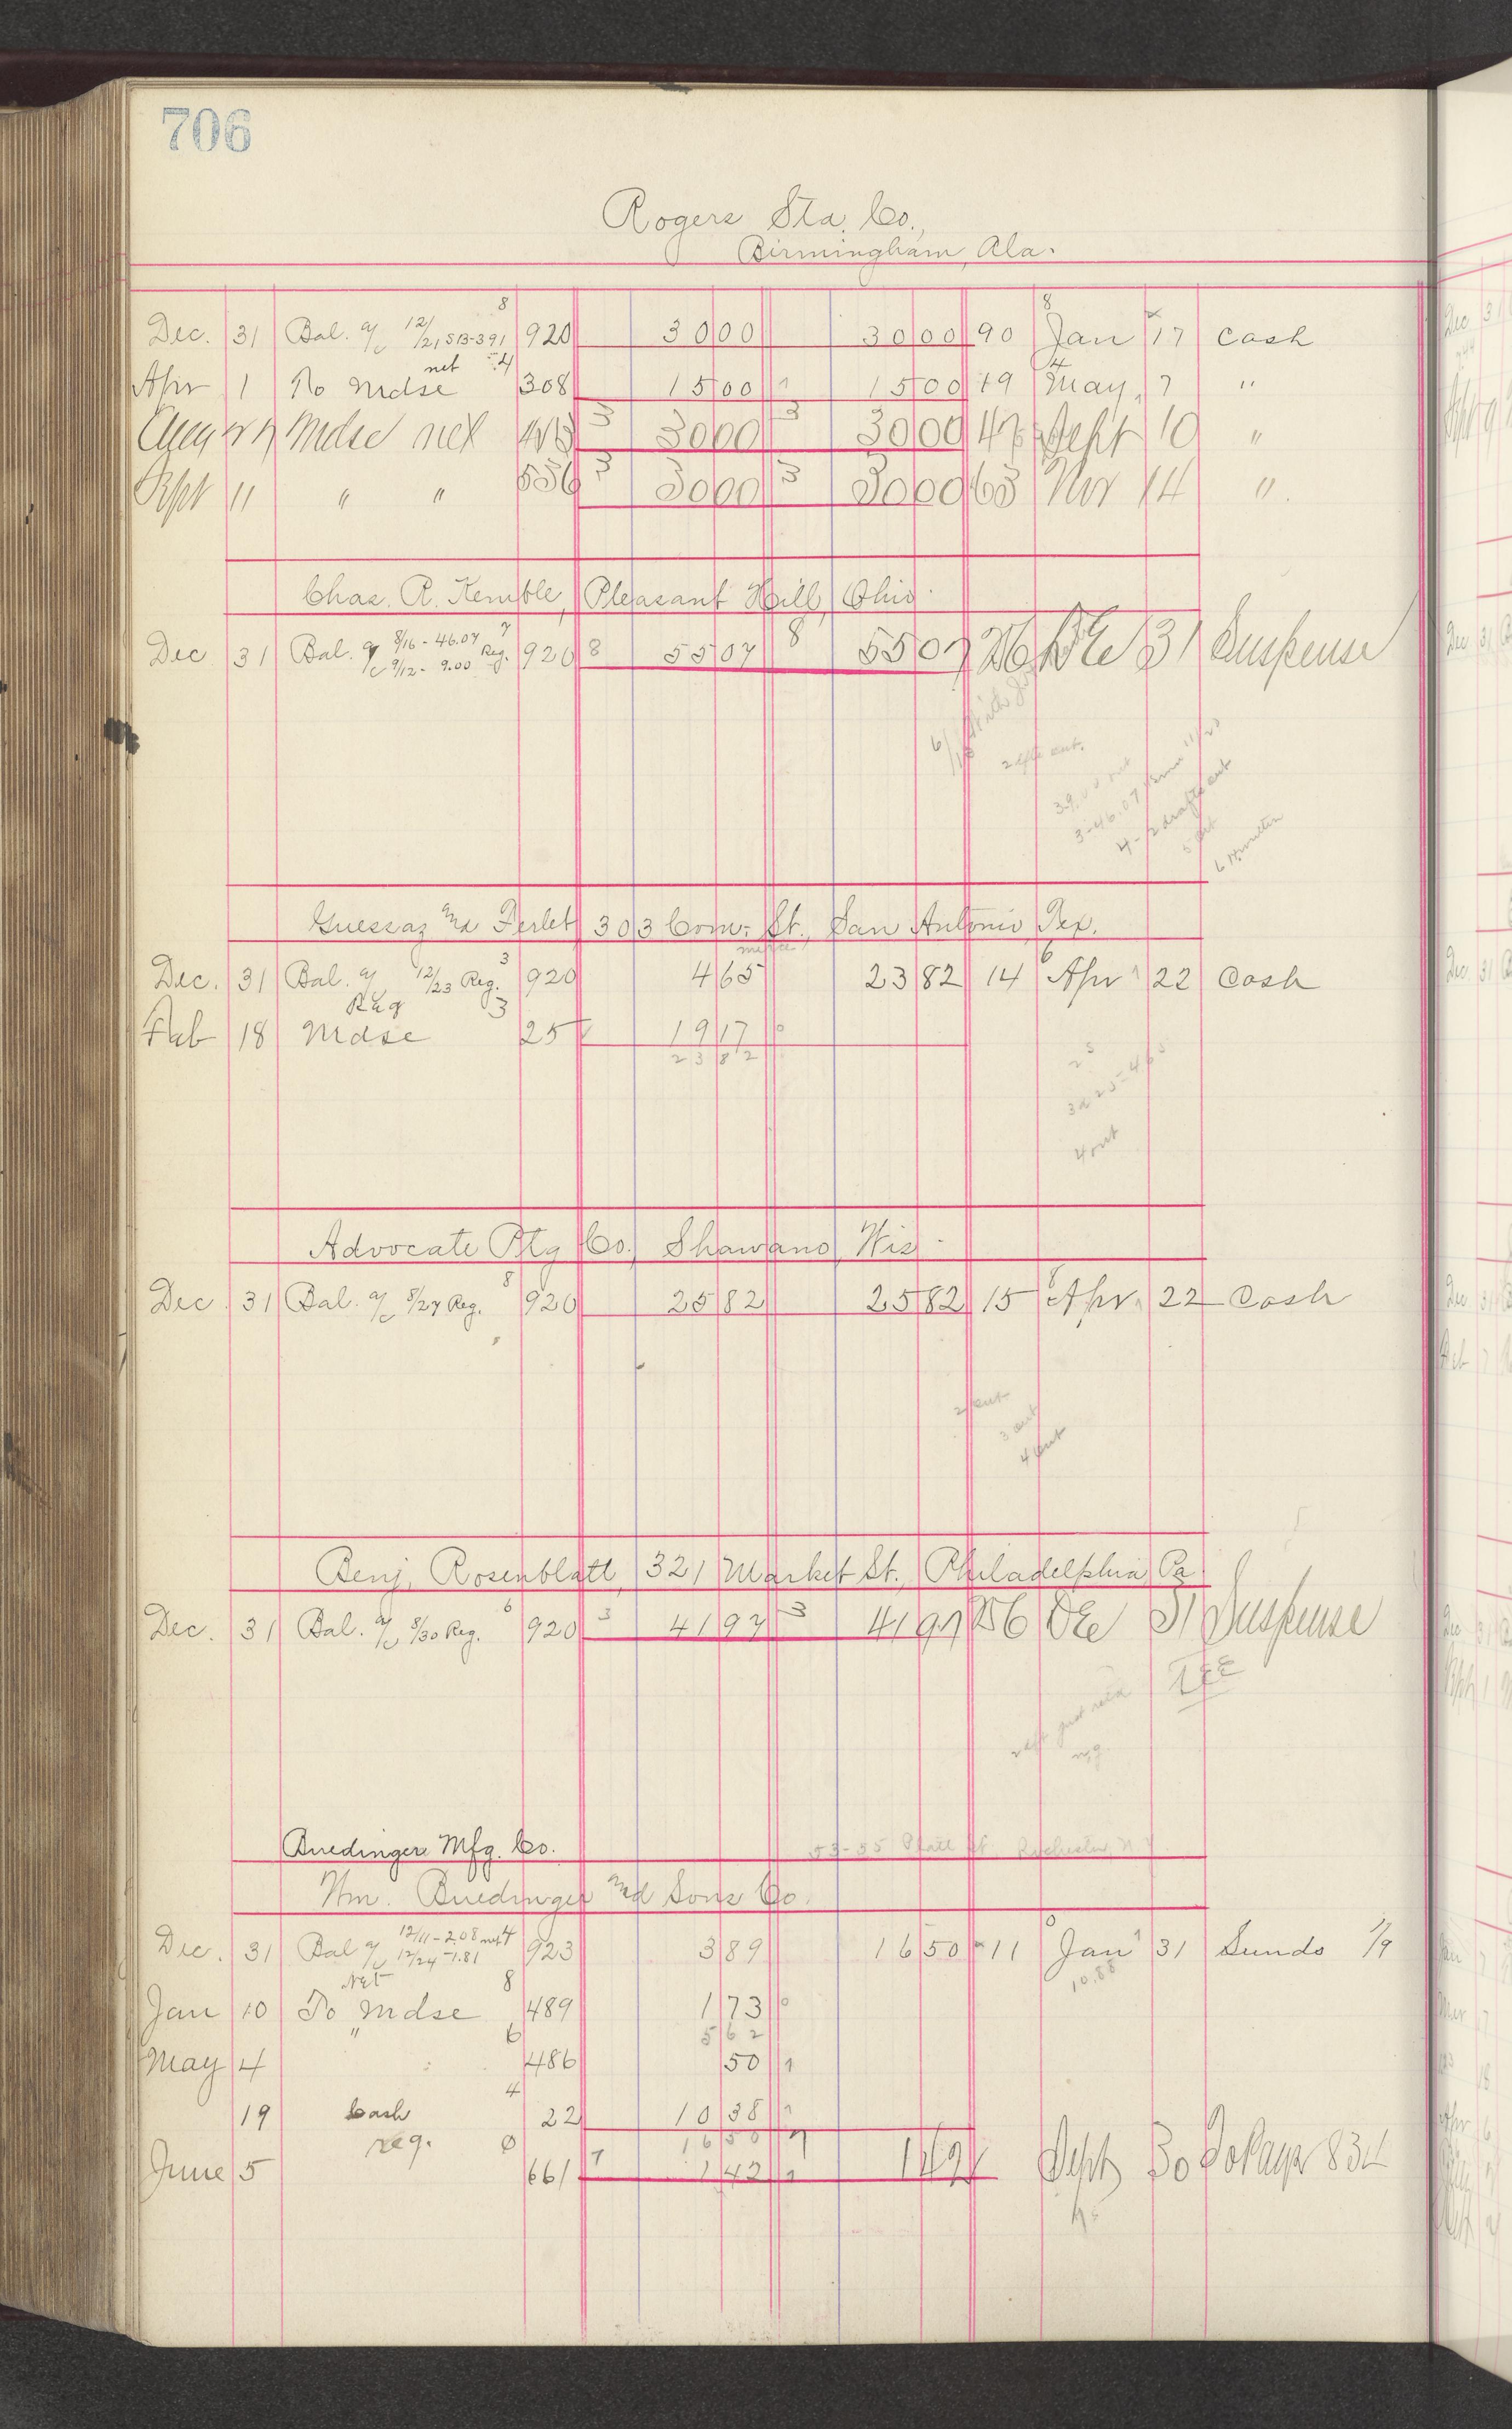 706
Rogers Sta. Co.,
Birmingham, Ala.
8 8
Dec. 31 Bal. a/c 12/21 SB-391 920 30 00 30 00 90 Jan 17 Cash
net 4 4
Apr 1 To Mdse 308 15 00 1 15 00 19 May 7 "
Aug 27 Mdse net 3 30 00 3 30 00 47 Sept 10 "
Sept 11 " " 536 3 30 00 3 30 00 63 Nov 14 "
Chas. R. Kemble, Pleasant Hill, Ohio.
Dec 31 Bal. a/c 8/16 - 46.07 9/12 - 9.00 Reg. 7 920 8 55 07 8 55 07 Dec 31 Suspense
6/13
2 dft ent.
39.00 net
3-46.07 11/23
4 - 2 drafts ent
5 ent
6
Guessaz and Ferlet 303 Com. St., San Antonio, Tex.
3 6
Dec. 31 Bal. a/c 12/23 Reg. 920 4 65 23 82 14 Apr 22 Cash
Reg 3
Feb 18 Mdse 25 19 17 0
23 82
25
3d 25 = 465
4 ent
Advocate Ptg Co., Shawano, Wis.
8 8
Dec. 31 Bal. a/c 8/27 Reg. 920 25 82 25 82 15 Apr. 22 Cash
2 ent
3 ent
4 ent
Benj. Rosenblatt, 321 Market St., Philadelphia, Pa
6
Dec. 31 Bal. a/c 8/30 Reg. 920 3 41 97 3 41 97 Dec 31 Suspense
n.g.
Buedinger Mfg. Co. 53-55 Platt St. Rochester N.Y.
Wm. Buedinger and Sons Co.
Dec. 31 Bal a/c 12/11 - 2.08 net 12/24 - 1.81 4 923 3 89 16 50 11 Jan 31 Sunds 1/9
Net 8 10.88
Jan 10 To Mdse 489 1 73 0
" 6 5 62
May 4 486 50 1
4
19 Cash 22 10 38 1
reg. 0 16 50
June 5 661 7 1 42 1 7 1 42 Sept 30 To Page 834